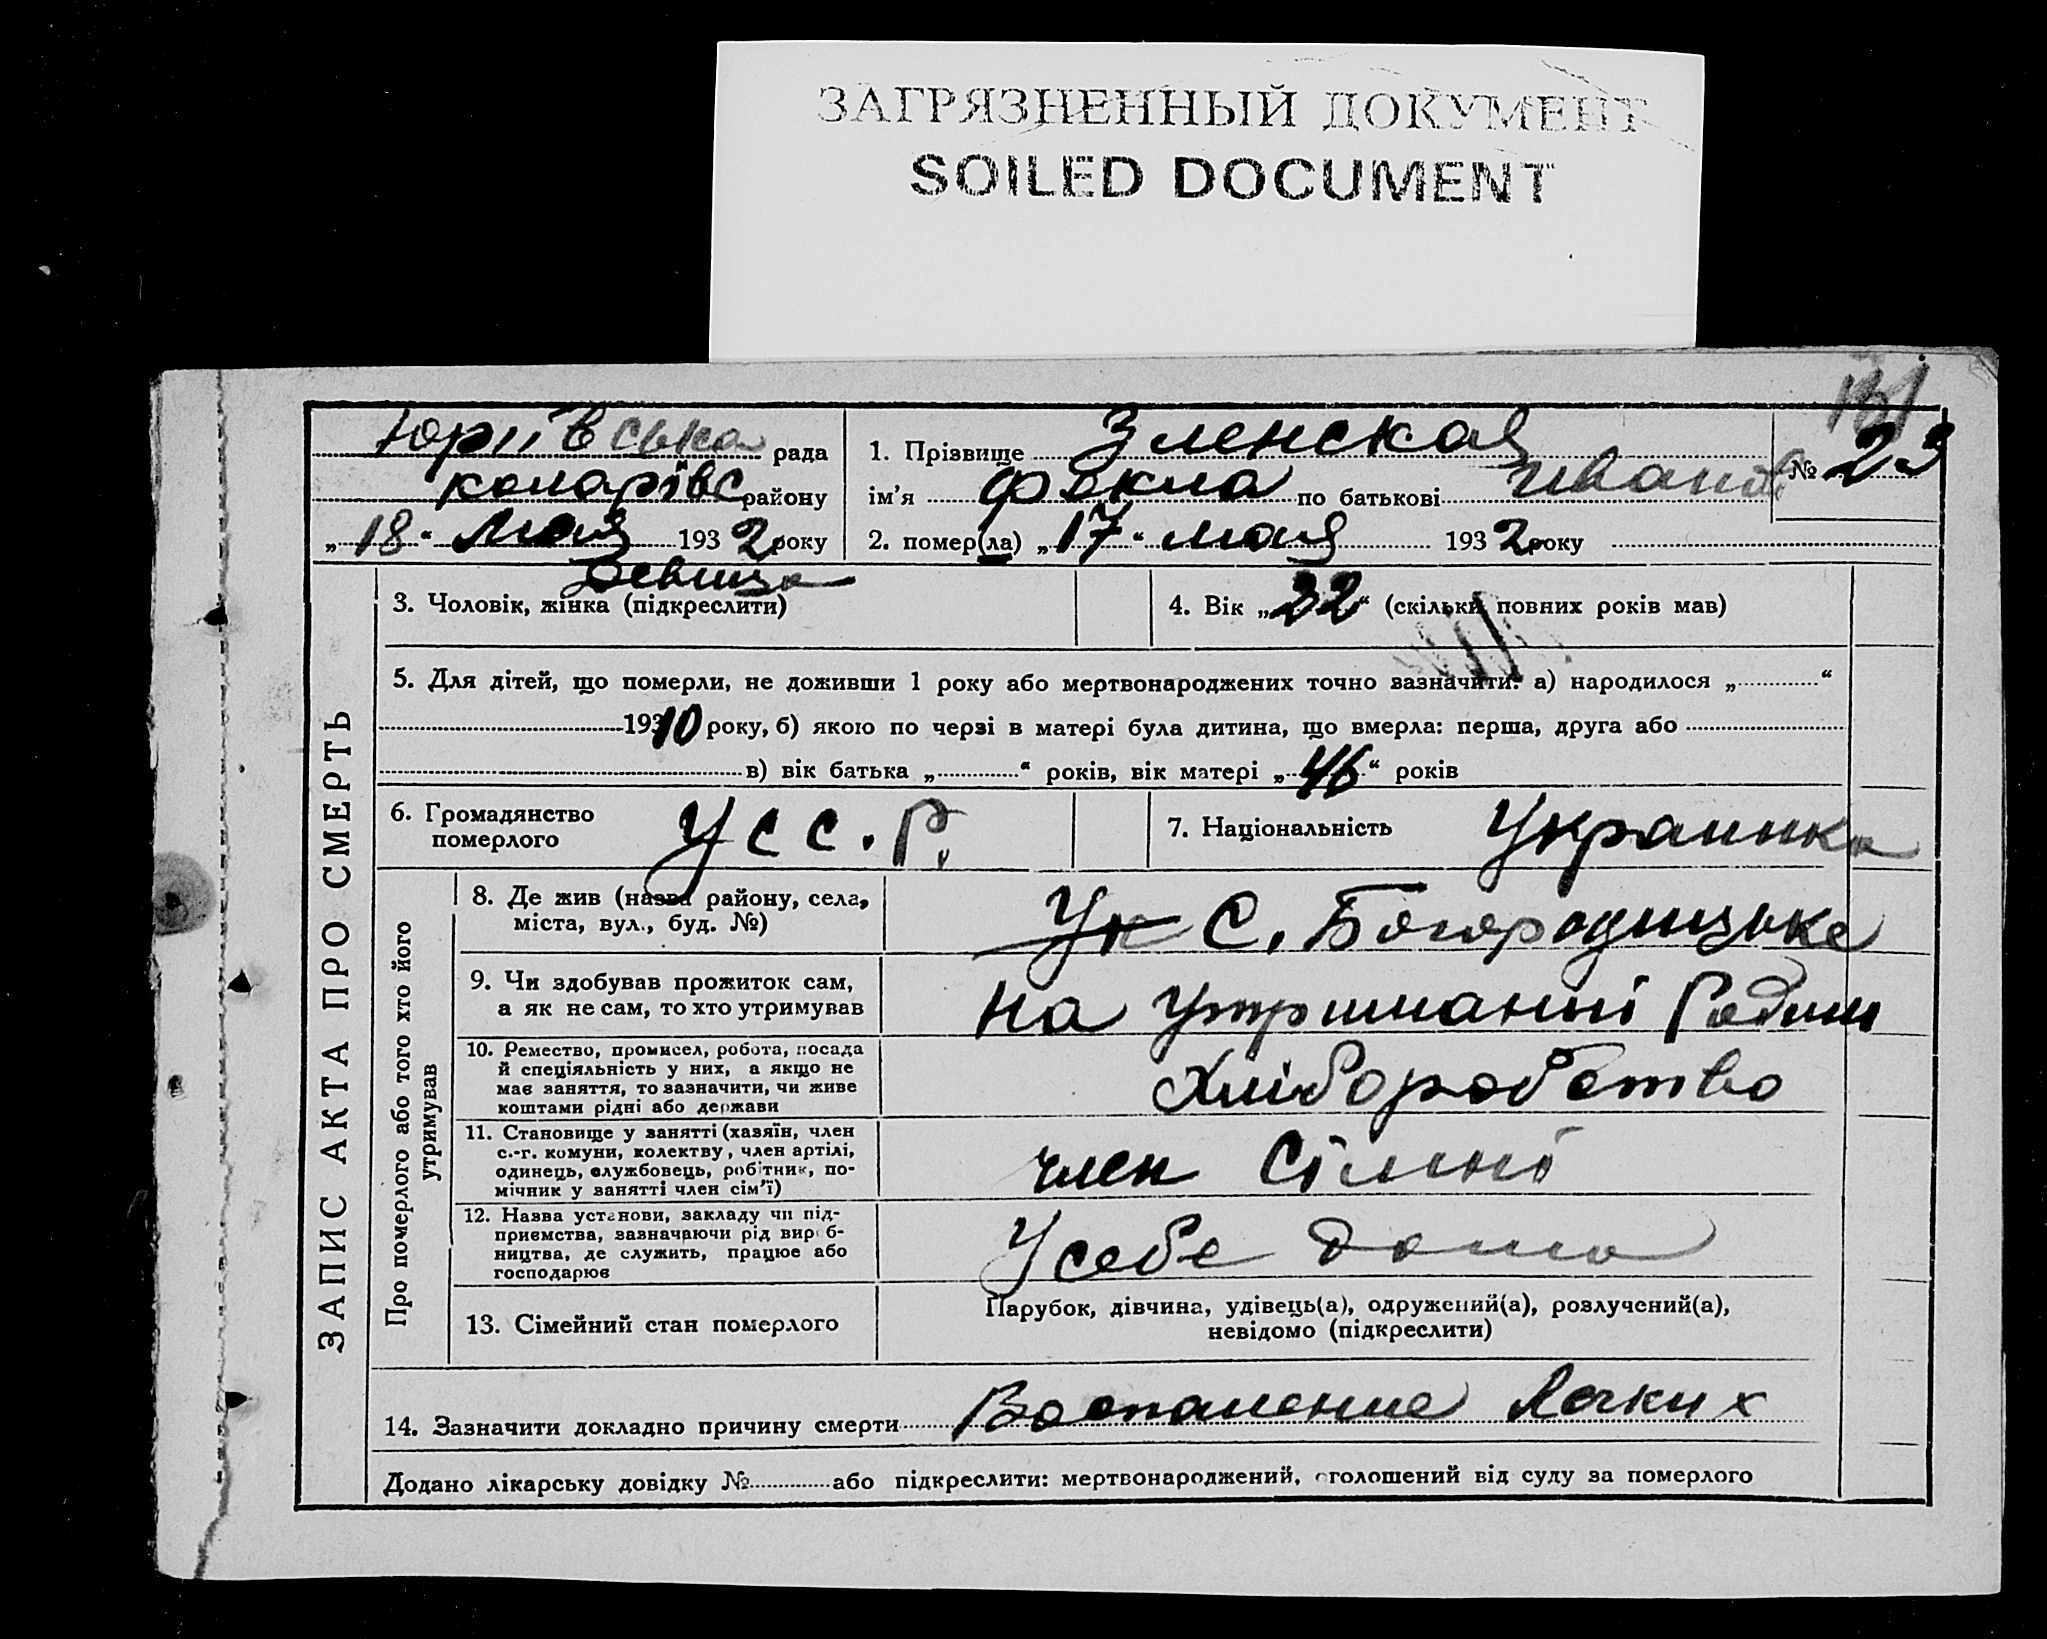 ЗАГРЯЗНЕННЫЙ ДОКУМЕНТ
SOILED DOCUMENT
131
Юріївська рада
комарівс району
„18“ Мая 1932 року
1. Прізвище Зленская
ім’я Фекла по батькові Иванов
№ 23
2. помер(ла) „17“ мая 1932 року
Девица
3. Чоловік, жінка (підкреслити)
4. Вік „22“ (скільки повних років мав)
5. Для дітей, що померли, не доживши 1 року або мертвонароджених точно зазначити: а) народилося „ “
193 10 року, б) якою по черзі в матері була дитина, що вмерла: перша, друга або
в) вік батька „ “ років, вік матері „46“ років
6. Громадянство
померлого
УСС.Р.
7. Національність Украинка
ЗАПИС АКТА ПРО СМЕРТЬ
Про померлого або того хто його
утримував
8. Де жив (назва району, села,
міста, вул., буд. №)
Ук С. Богородицьке
9. Чи здобував прожиток сам,
а як не сам, то хто утримував
на утриманні Родини
10. Ремество, промисел, робота, посада
й спеціяльність у них, а якщо не
має заняття, то зазначити, чи живе
коштами рідні або держави
Хліборобство
11. Становище у занятті (хазяїн, член
с.-г. комуни, колектву, член артілі,
одинець, службовець, робітник, по-
мічник у занятті член сім’ї)
член Сімні
12. Назва установи, закладу чи під-
приємства, зазначаючи рід вироб-
ництва, де служить, працює або
господарює
У себе дома
13. Сімейний стан померлого
Парубок, дівчина, удівець(а), одружений(а), розлучений(а),
невідомо (підкреслити)
14. Зазначити докладно причину смерти Воспаление Легких
Додано лікарську довідку № або підкреслити: мертвонароджений, оголошений від суду за померлого